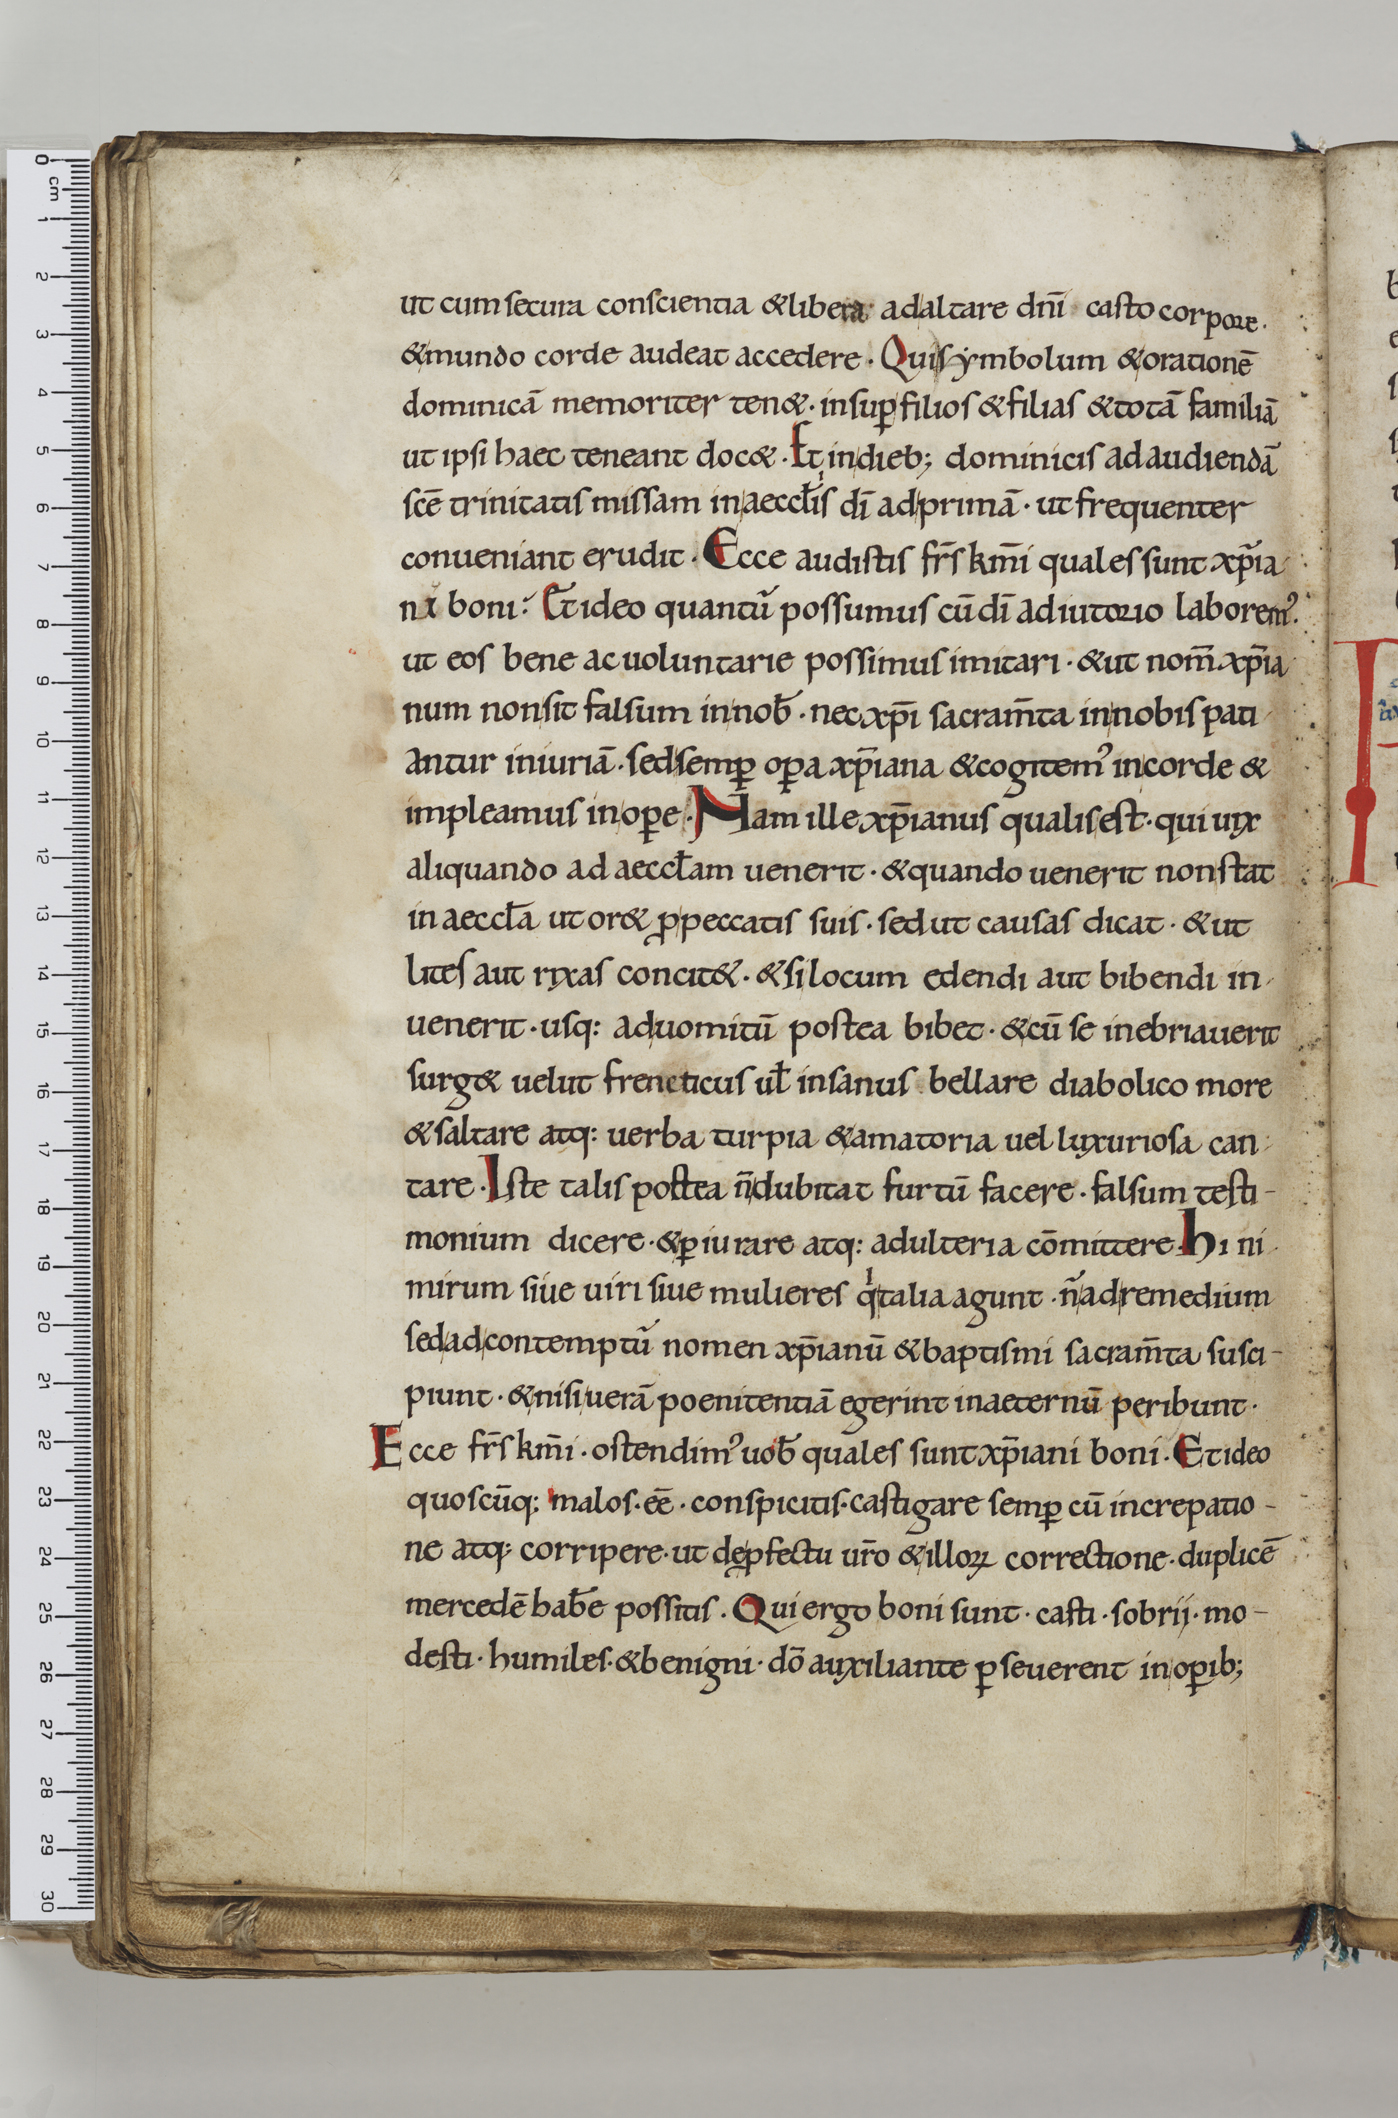 ut cum secura conscientia & libera ad altare dnī casto corpore.
& mundo corde audeat accedere. Qui symbolum & orationē
dominicā memoriter ten&. insup̱ filios & filias & totā familiā
ut ipsi haec teneant doc&. Et in dieb; dominicis ad audiendā
scē trinitatis missam in aeccl̄is dī ad primā. ut frequenter
conueniant erudit. Ecce audistis fr̄s km̄i quales sunt xp̄ia
ni boni. Et ideo quantū possumus cū dī adiutorio laborem᾿.
ut eos bene ac uoluntarie possimus imitari. & ut nom̄ xp̄ia
num non sit falsum in nob̄. nec xp̄i sacram̄ta in nobis pati
antur iniuriā. sed semp̱ op̱a xp̄iana & cogitem᾿ in corde &
impleamus in op̱e. Nam ille xp̄ianus qualis est. qui uix
aliquando ad aeccl̄am uenerit. & quando uenerit non stat
in aeccl̄a ut or& ꝓ peccatis suis. sed ut causas dicat. & ut
lites aut rixas concit&. & si locum edendi aut bibendi in
uenerit. usq: ad uomitū postea bibet. & cū se inebriauerit
surg& uelut freneticus ul̄ insanus bellare diabolico more
& saltare atq: uerba turpia & amatoria uel luxuriosa can
tare. Iste talis postea n̄ dubitat furtū facere. falsum testi-
monium dicere. & ꝑiurare atq: adulteria cōmittere. hi ni
mirum siue uiri siue mulieres qͥ talia agunt. n̄ ad remedium
sed ad contemptū nomen xp̄ianū & baptismi sacram̄ta susci-
piunt. & nisi uerā poenitentiā egerint in aeternū peribunt.
Ecce fr̄s km̄i. ostendim᾿ uob̄ quales sunt xp̄iani boni. Et ideo
quoscūq; malos. eē. conspicitis. castigare semp̱ cū increpatio-
ne atq; corripere. ut de ꝓfectu ur̄o & illoꝝ correctione. duplicē
mercedē hab̄e possitis. Qui ergo boni sunt. casti. sobrij. mo-
desti. humiles. & benigni. dō auxiliante ꝑseuerent in op̱ib;
0 cm 1 2 3 4 5 6 7 8 9 10 11 12 13 14 15 16 17 18 19 20 21 22 23 24 25 26 27 28 29 30